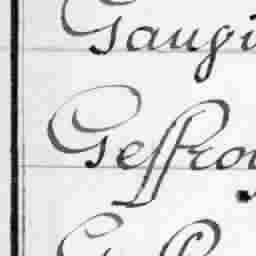 Gaugi
Geffroy